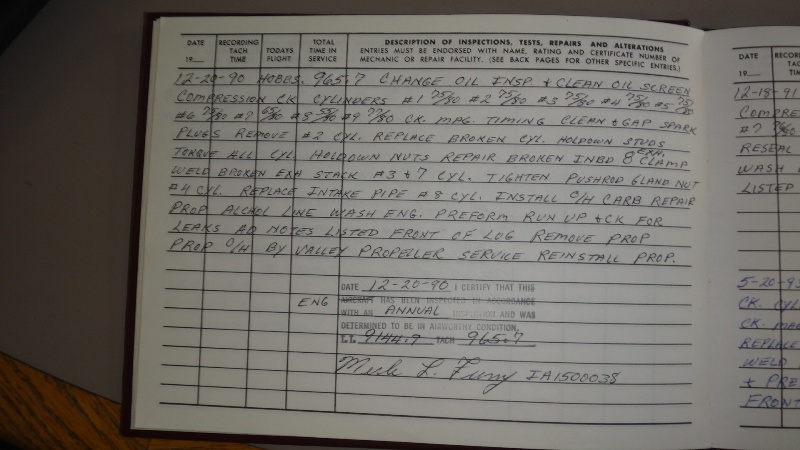 DATE RECORDING TACH TIME TODAYS FLIGHT TOTAL TIME IN SERVICE DESCRIPTION OF INSPECTIONS, TESTS, REPAIRS AND ALTERATIONS
19___ ENTRIES MUST BE ENDORSED WITH NAME, RATING AND CERTIFICATE NUMBER OF
MECHANIC OR REPAIR FACILITY. (SEE BACK PAGES FOR OTHER SPECIFIC ENTRIES.)
12-20-90 HOBBS. 965.7 CHANGE OIL INSP + CLEAN OIL SCREEN
COMPRESSION CK CYLINDERS #1 75/80 #2 75/80 #3 75/80 #4 75/80 #5 75/80
#6 75/80 #7 65/80 #8 55/80 #9 77/80 CK. MAG. TIMING CLEAN + GAP SPARK
PLUGS REMOVE #2 CYL. REPLACE BROKEN CYL. HOLDOWN STUDS
TORQUE ALL CYL. HOLDOWN NUTS REPAIR BROKEN INBD 8 EXH. CLAMP
WELD BROKEN EXH STACK #3 + 7 CYL. TIGHTEN PUSHROD GLAND NUT
#4 CYL. REPLACE INTAKE PIPE #8 CYL. INSTALL O/H CARB REPAIR
PROP ALCHOL LINE WASH ENG. PREFORM RUN UP + CK FOR
LEAKS AD NOTES LISTED FRONT OF LOG REMOVE PROP
PROP O/H BY VALLEY PROPELLER SERVICE REINSTALL PROP.
DATE 12-20-90 I CERTIFY THAT THIS
ENG AIRCRAFT HAS BEEN INSPECTED IN ACCORDANCE
WITH AN ANNUAL INSPECTION AND WAS
DETERMINED TO BE IN AIRWORTHY CONDITION.
T.T. 9144.9 TACH 965.7
Merle L. Furry IA1500038
DATE RECORDING TACH TIME
19___
12-18-91
COMPRE
#7
RESEAL
WASH
LISTED
5-20-93
CK. CYL
CK. MA
REPLACE
WELD
+ PRE
FRONT